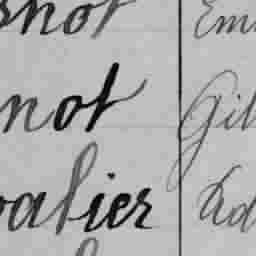 snot Em
not Gil
valier Ad